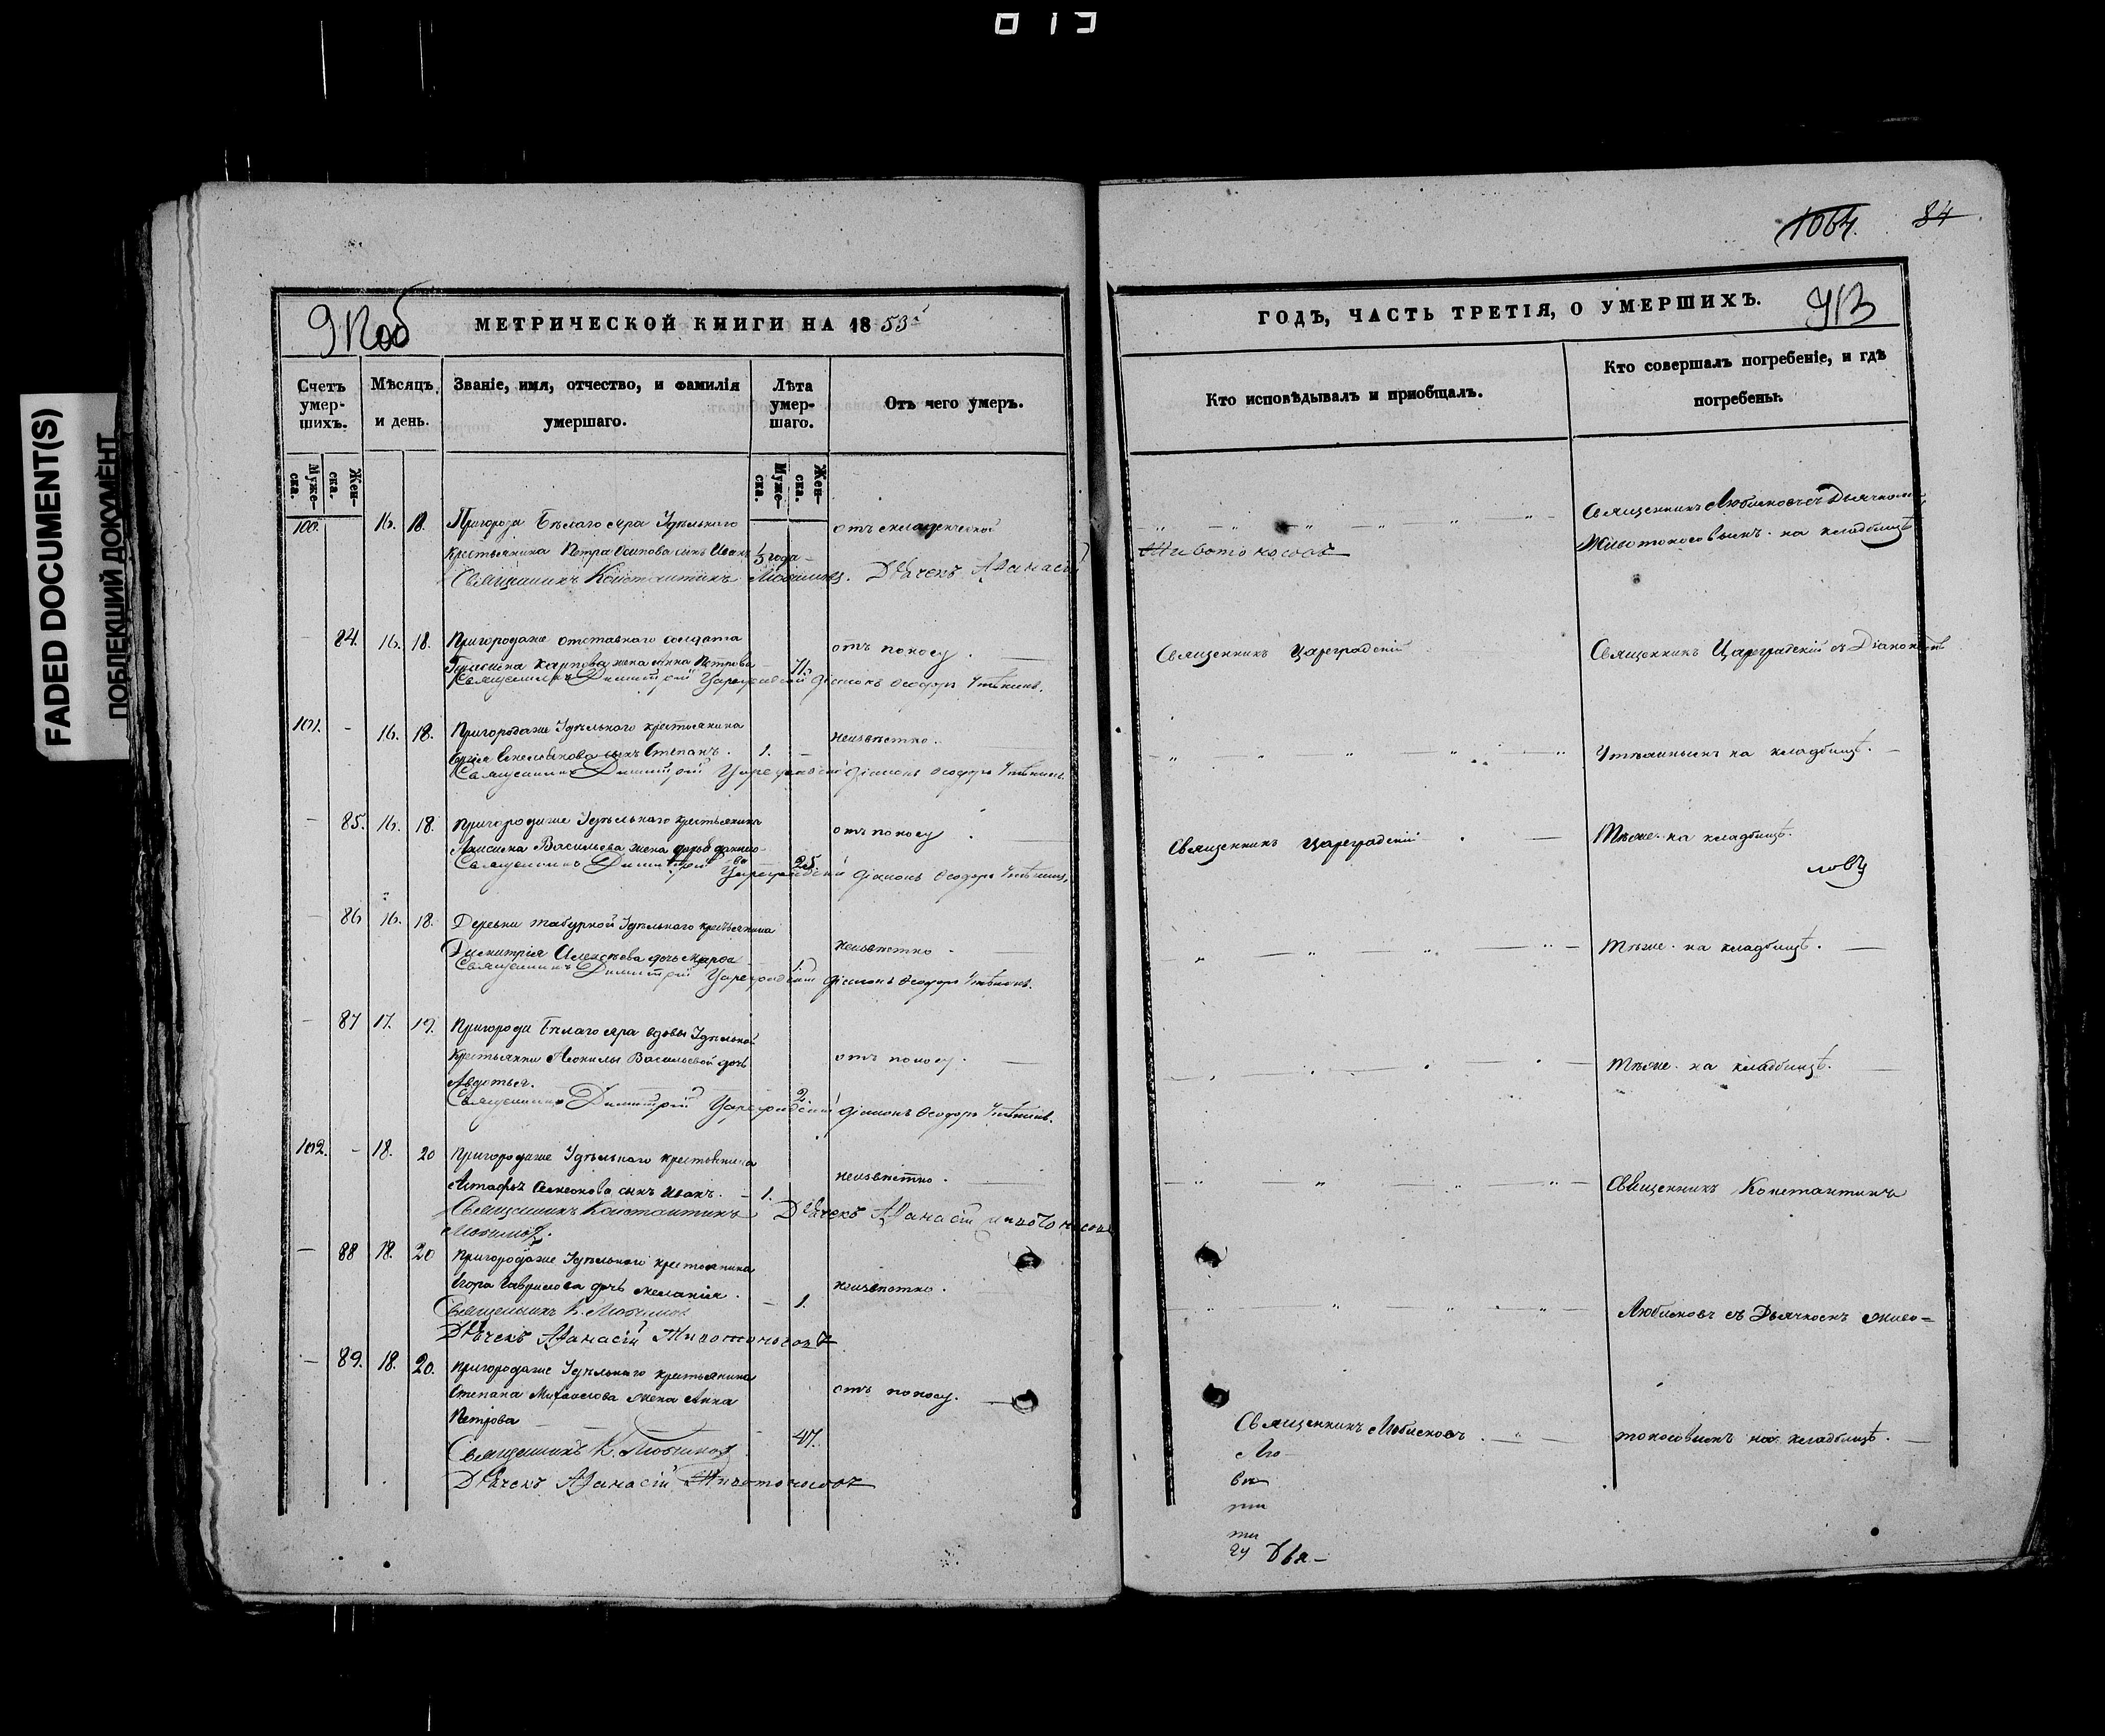 013
FADED DOCUMENT(S)
ПОБЛЕКШИЙ ДОКУМЕНТ
912об
МЕТРИЧЕСКОЙ КНИГИ НА 1853
Счетъ умер-шихъ.
Мѣсяцъ и день.
Званіе, имя, отчество, и фамилія умершаго.
Лѣта умер-шаго.
Отъ чего умеръ.
Муже-ска.
Жен-ска.
Муже-ска.
Жен-ска.
100. 16. 18. Пригорода Бѣлаго Яра Удѣльнаго
крестьянина Петра Осипова сынъ Иванъ 1/3 года
Священникъ Константинъ Любимовъ. Дьячекъ Афанасій
84. 16. 18. Пригородаже отставнаго солдата отъ поносу.
Карпова жена Анна Петрова 71.
Священникъ Димитрій Цареградскій Діаконъ Ѳеодоръ Утѣхинъ.
101. - 16. 18. Пригородаже Удѣльнаго крестьянина неизвѣстно.
сынъ Степанъ. 1. -
Священникъ Димитрій Цареградскій Діаконъ Ѳеодоръ Утѣхинъ.
- 85. 16. 18. Пригородаже Удѣльнаго крестьянина отъ поносу
Васильева жена 25.
Священникъ Димитрій Цареградскій Діаконъ Ѳеодоръ Утѣхинъ.
- 86 16. 18. Деревни Удѣльнаго крестьянина
Димитрія Алексѣева дочь 1. неизвѣстно
Священникъ Димитрій Цареградскій Діаконъ Ѳеодоръ Утѣхинъ.
- 87 17. 19. Пригорода Бѣлаго Яра вдовы Удѣльной
крестьянки Васильевой дочь отъ поносу.
Авдотья. 2.
Священникъ Димитрій Цареградскій Діаконъ Ѳеодоръ Утѣхинъ.
102. - 18. 20 Пригородаже Удѣльнаго крестьянина неизвѣстно.
сынъ Иванъ. - 1.
Священникъ Константинъ Дьячекъ Афанасій
Любимовъ.
- 88 18. 20 Пригородаже Удѣльнаго крестьянина
Егора Гаврилова дочь Меланія. - 1. неизвѣстно.
Священникъ К. Любимовъ
Дьячекъ Афанасій Животоносовъ
- 89. 18. 20. Пригородаже Удѣльнаго крестьянина
Степана Михайлова жена Анна отъ поносу.
Петрова 47.
Священникъ К. Любимовъ
Дьячекъ Афанасій Животоносовъ
1064. 84
ГОДЪ, ЧАСТЬ ТРЕТІЯ, О УМЕРШИХЪ. 913
Кто исповѣдывалъ и приобщалъ.
Кто совершалъ погребеніе, и гдѣ погребены.
Священникъ Любимовъ съ Дьячкомъ
Животоносовымъ на кладбищѣ
Животоносовъ
Священникъ Цареградскій
Священникъ Цареградскій съ Діакономъ
Утѣхинымъ на кладбищѣ.
Священникъ Цареградскій
Тѣже. на кладбищѣ.
ловъ
Тѣже. на кладбищѣ.
Тѣже. на кладбищѣ.
Священникъ Константинъ
Любимовъ съ Дьячкомъ Живо=
Священникъ Любимовъ
тоносовымъ на кладбищѣ.
Лю
Дья-